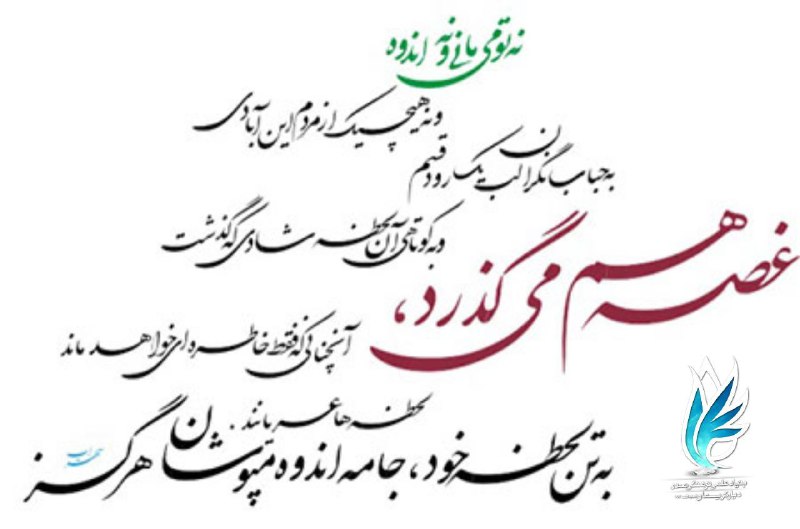 نه تو می مانی و نه اندوه
و نه هیچیک از مردم این آبادی
به حباب نگران لب یک رود قسم
و به کوتاهی آن لحظه شادی که گذشت
غصه هم می گذرد،
آنچنانی که فقط خاطره ای خواهد ماند
لحظه ها عریانند.
به تن لحظه خود، جامه اندوه مپوشان هرگز
سهراب